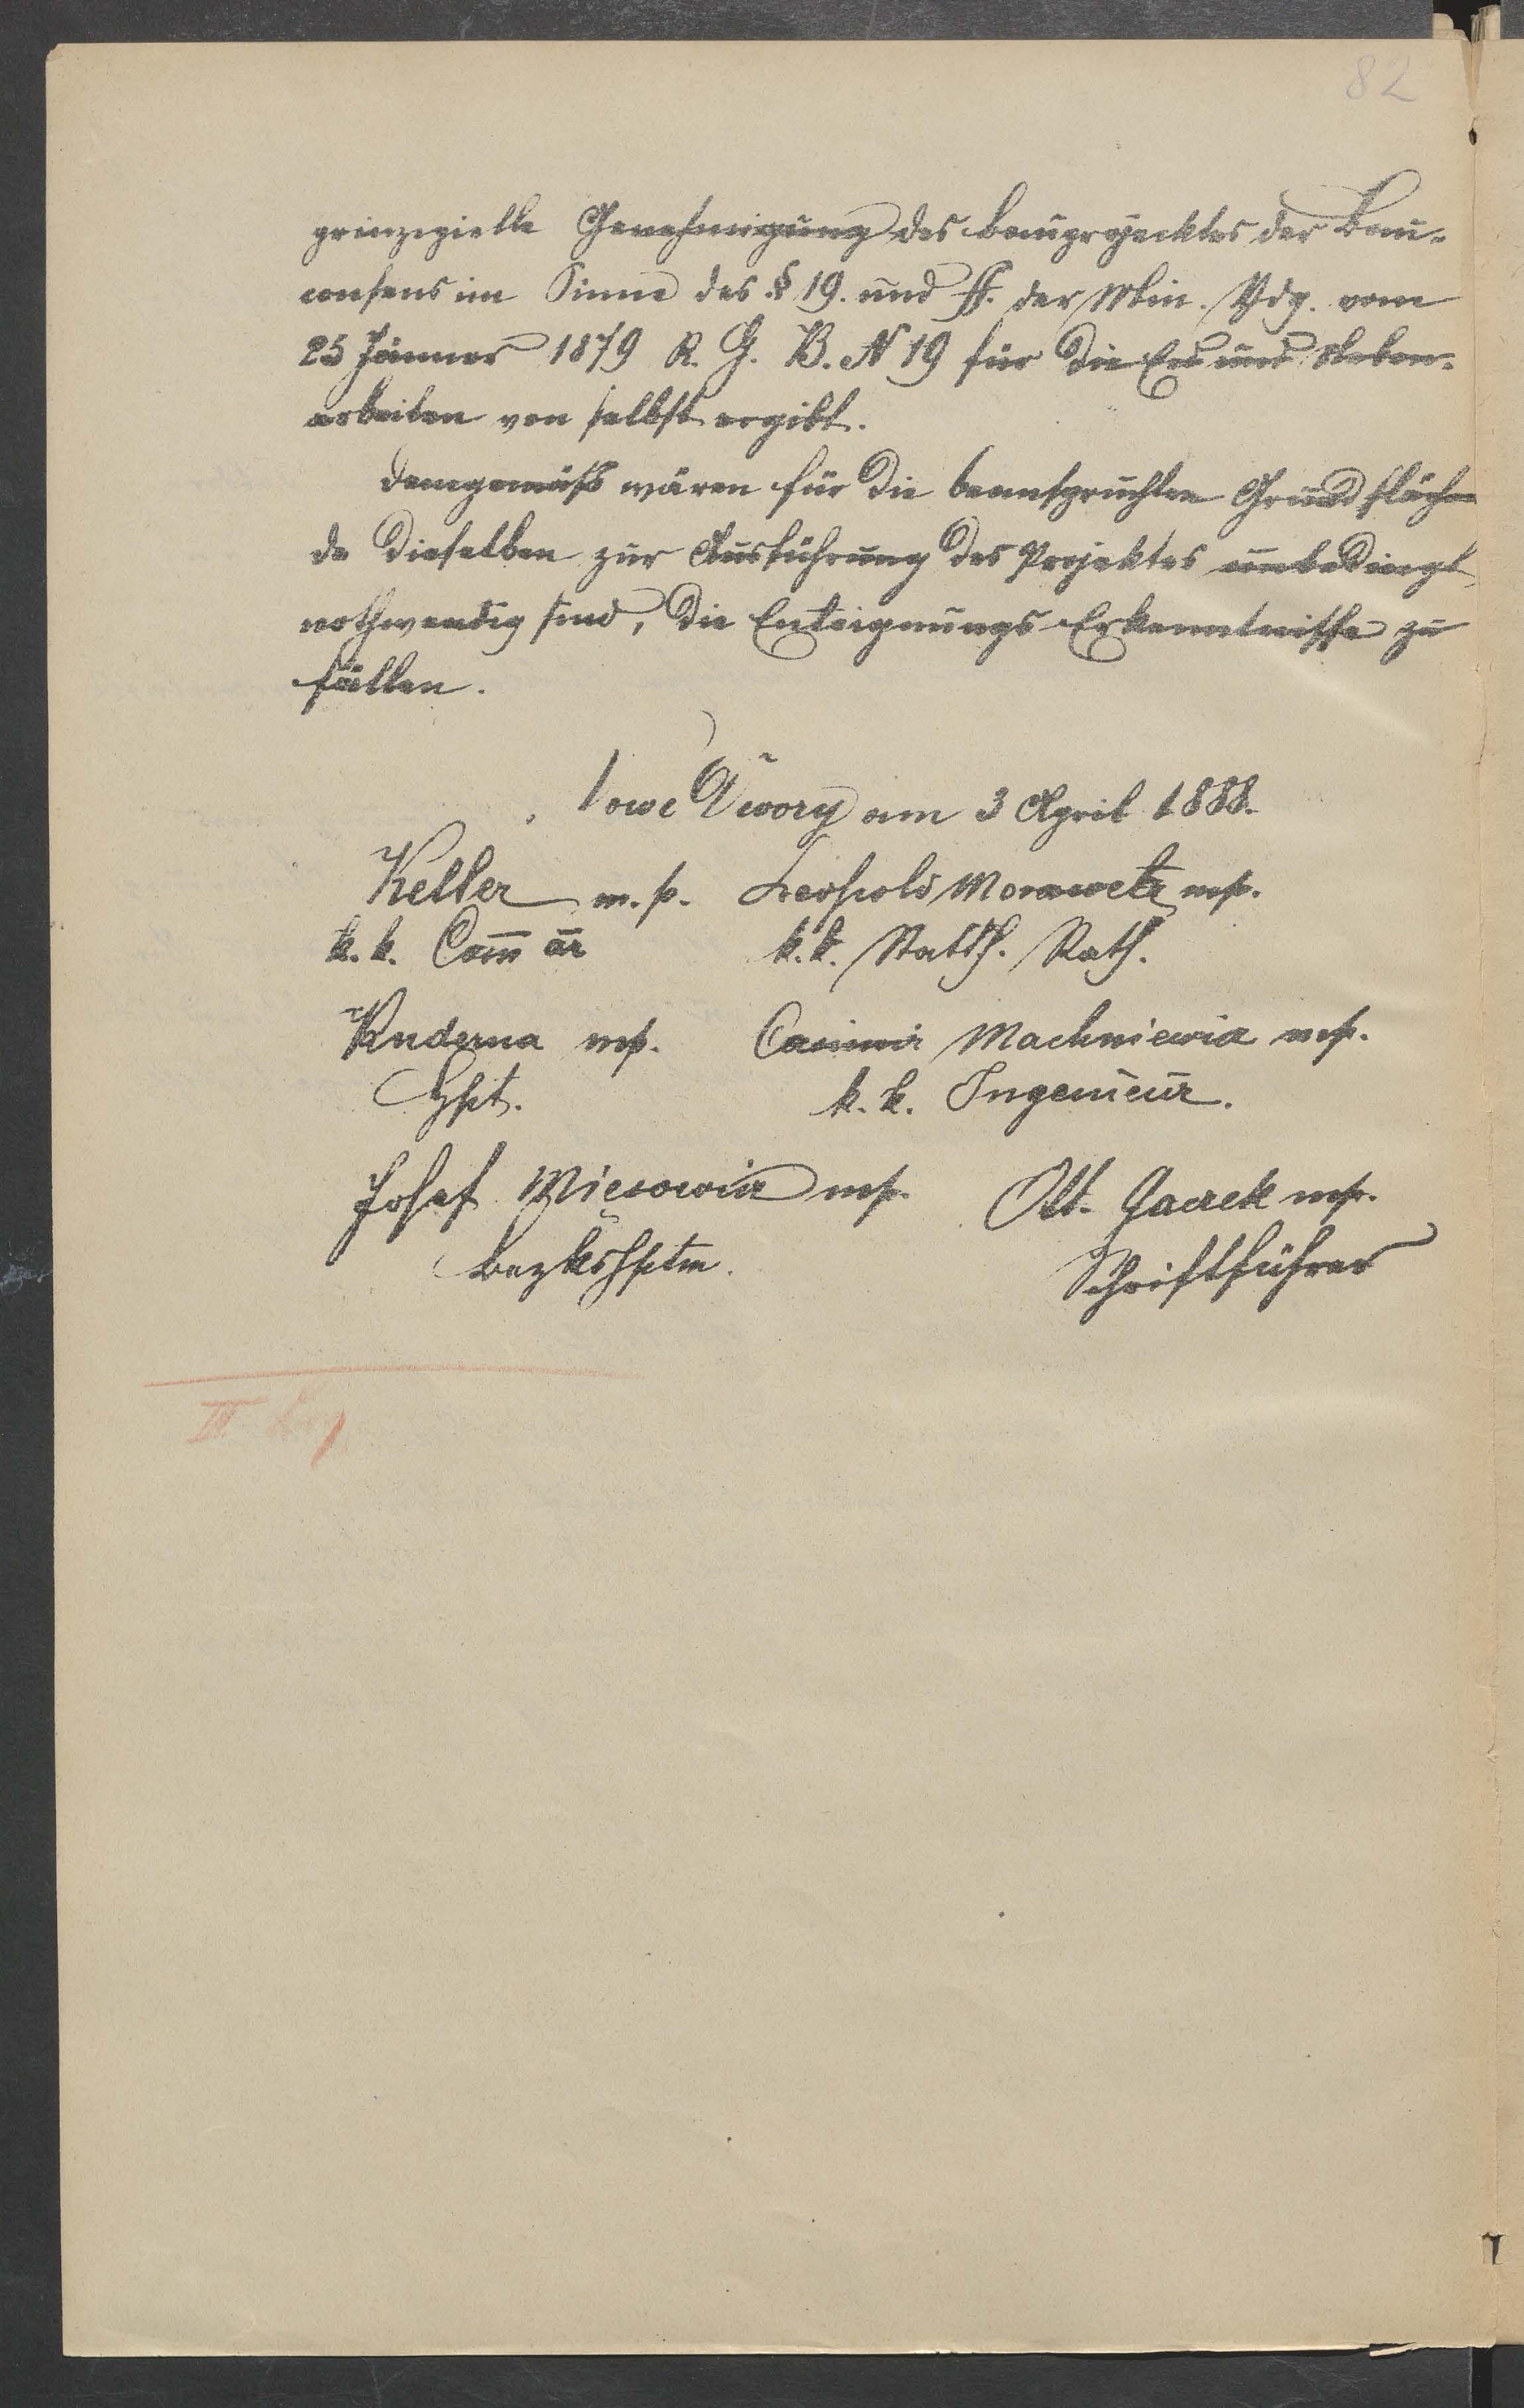 82
prinzipielle Genehmigung des Bauprojecktes der Bau-
consens im Sinne des § 19. und ff. der Min. Vdg. vom
25 Jänner 1879 R. G. B. N 19 für die Erd und Neben-
arbeiten von selbst ergibt.
Demgemäß wären für die beanspruchten Grundflächen
da dieselben zur Ausführung des Projektes unbedingt
nothwendig sind, die Enteignungs-Erkenntnisse zu
fällen.
Dwory am 3 April 1888.
Keller m.p. Leopold Morawetz mp.
k. k. Com̅ är k. k. Statth. Rath.
Kuderna mp. Casimir Machniewicz mp.
Hpt. k. k. Ingenieur.
Josef mp. Ott. Gacek mp.
Bezkshptm. Schriftführer
II